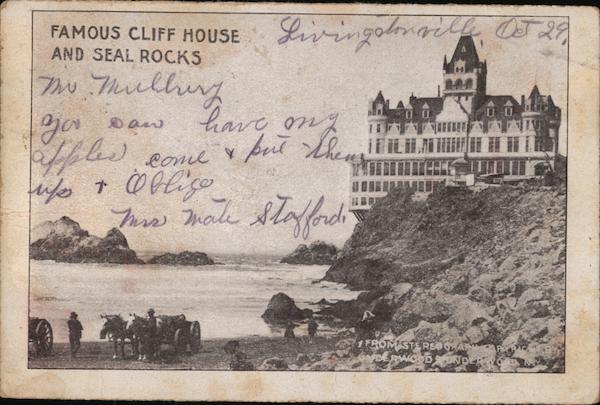 FAMOUS CLIFF HOUSE
AND SEAL ROCKS
Livingstonville Oct 29,
Mr Mulbury
you can have my
apples come & put them
up & Oblige
Mrs Mate Stafford.
FROM STEREOGRAPH COPYRIGHT
UNDERWOOD & UNDERWOOD N.Y.